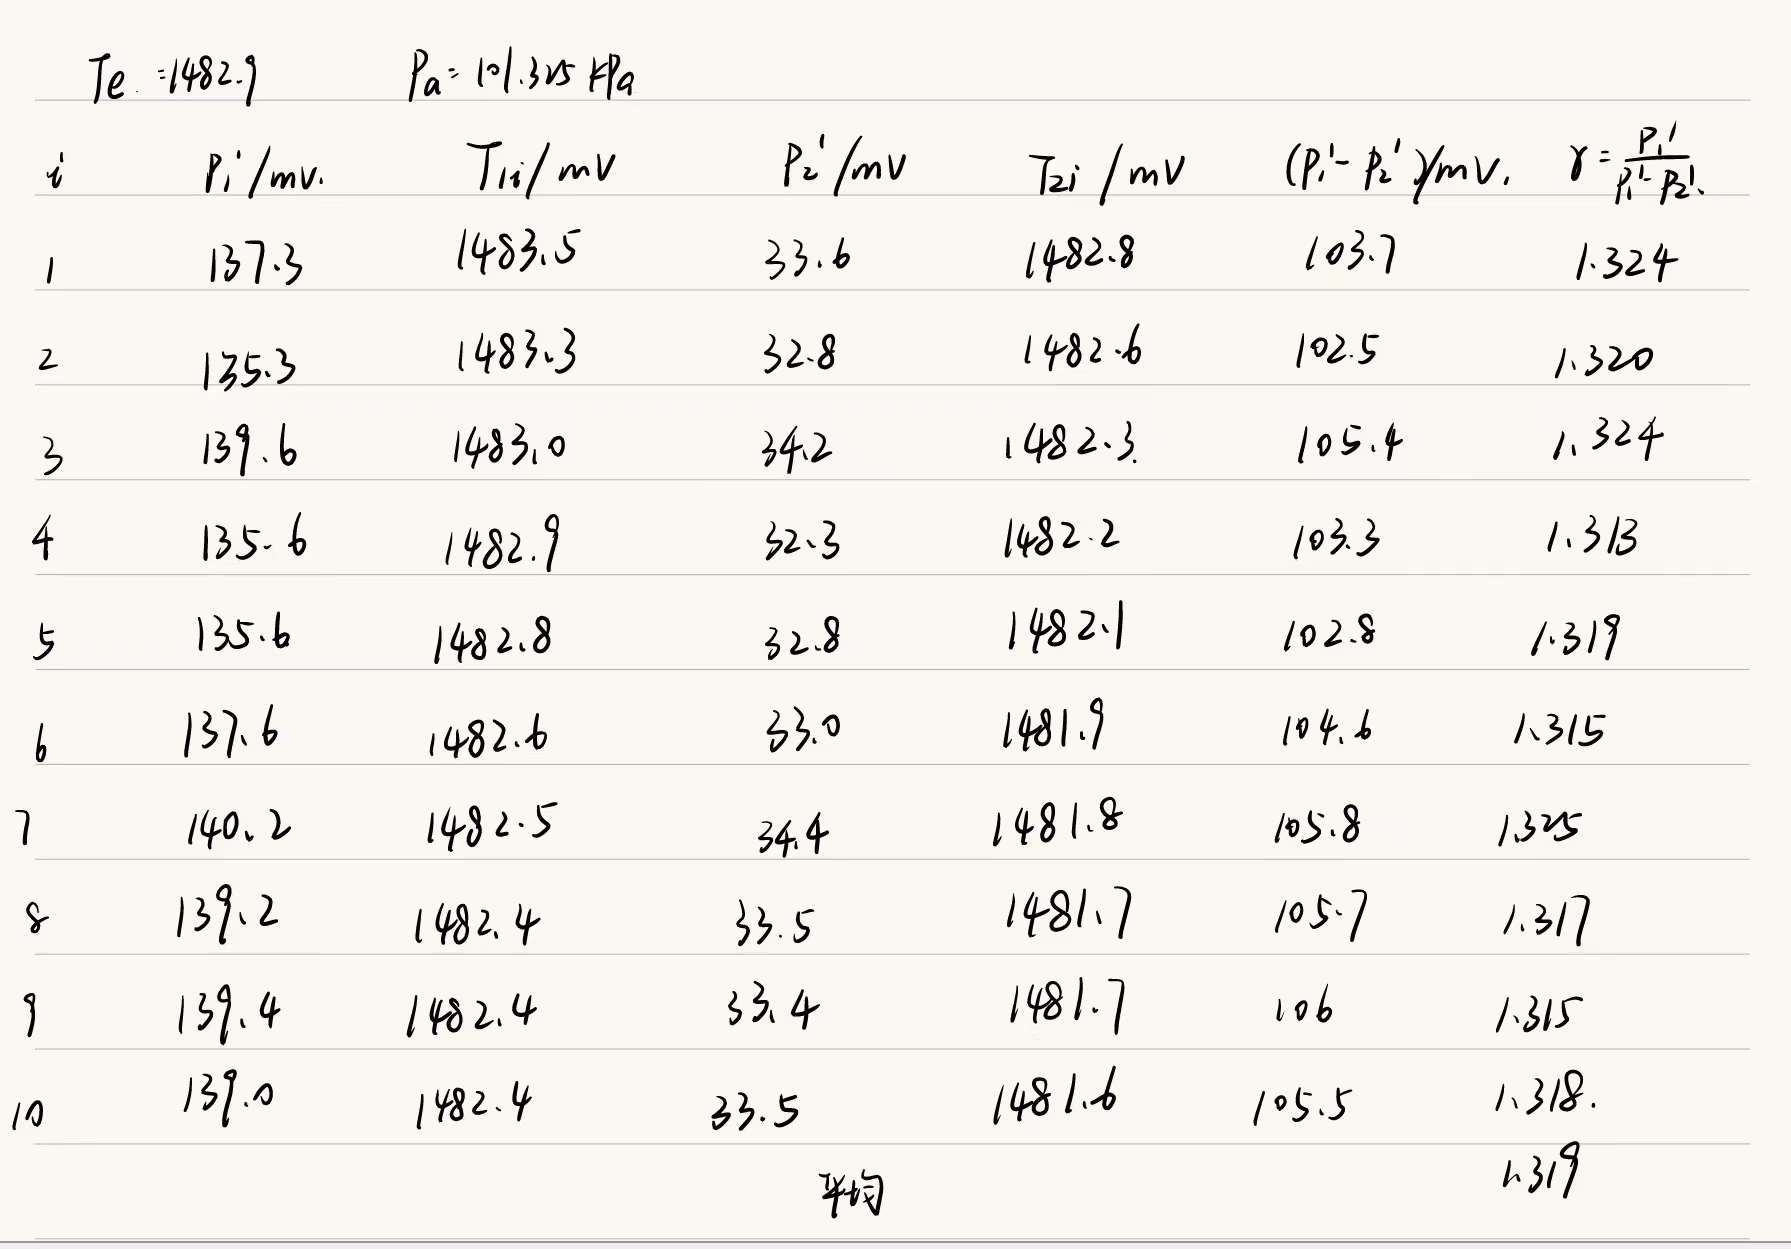 Te =1482.9 Pa = 101.325 kPa
i P₁'/mv. T₁ᵢ/mV P₂'/mV T₂ᵢ/mV (P₁'-P₂')/mV. γ = P₁'/P₁'-P₂'.
1 137.3 1483.5 33.6 1482.8 103.7 1.324
2 135.3 1483.3 32.8 1482.6 102.5 1.320
3 139.6 1483.0 34.2 1482.3 105.4 1.324
4 135.6 1482.9 32.3 1482.2 103.3 1.313
5 135.6 1482.8 32.8 1482.1 102.8 1.319
6 137.6 1482.6 33.0 1481.9 104.6 1.315
7 140.2 1482.5 34.4 1481.8 105.8 1.325
8 139.2 1482.4 33.5 1481.7 105.7 1.317
9 139.4 1482.4 33.4 1481.7 106 1.315
10 139.0 1482.4 33.5 1481.6 105.5 1.318.
平均 1.319